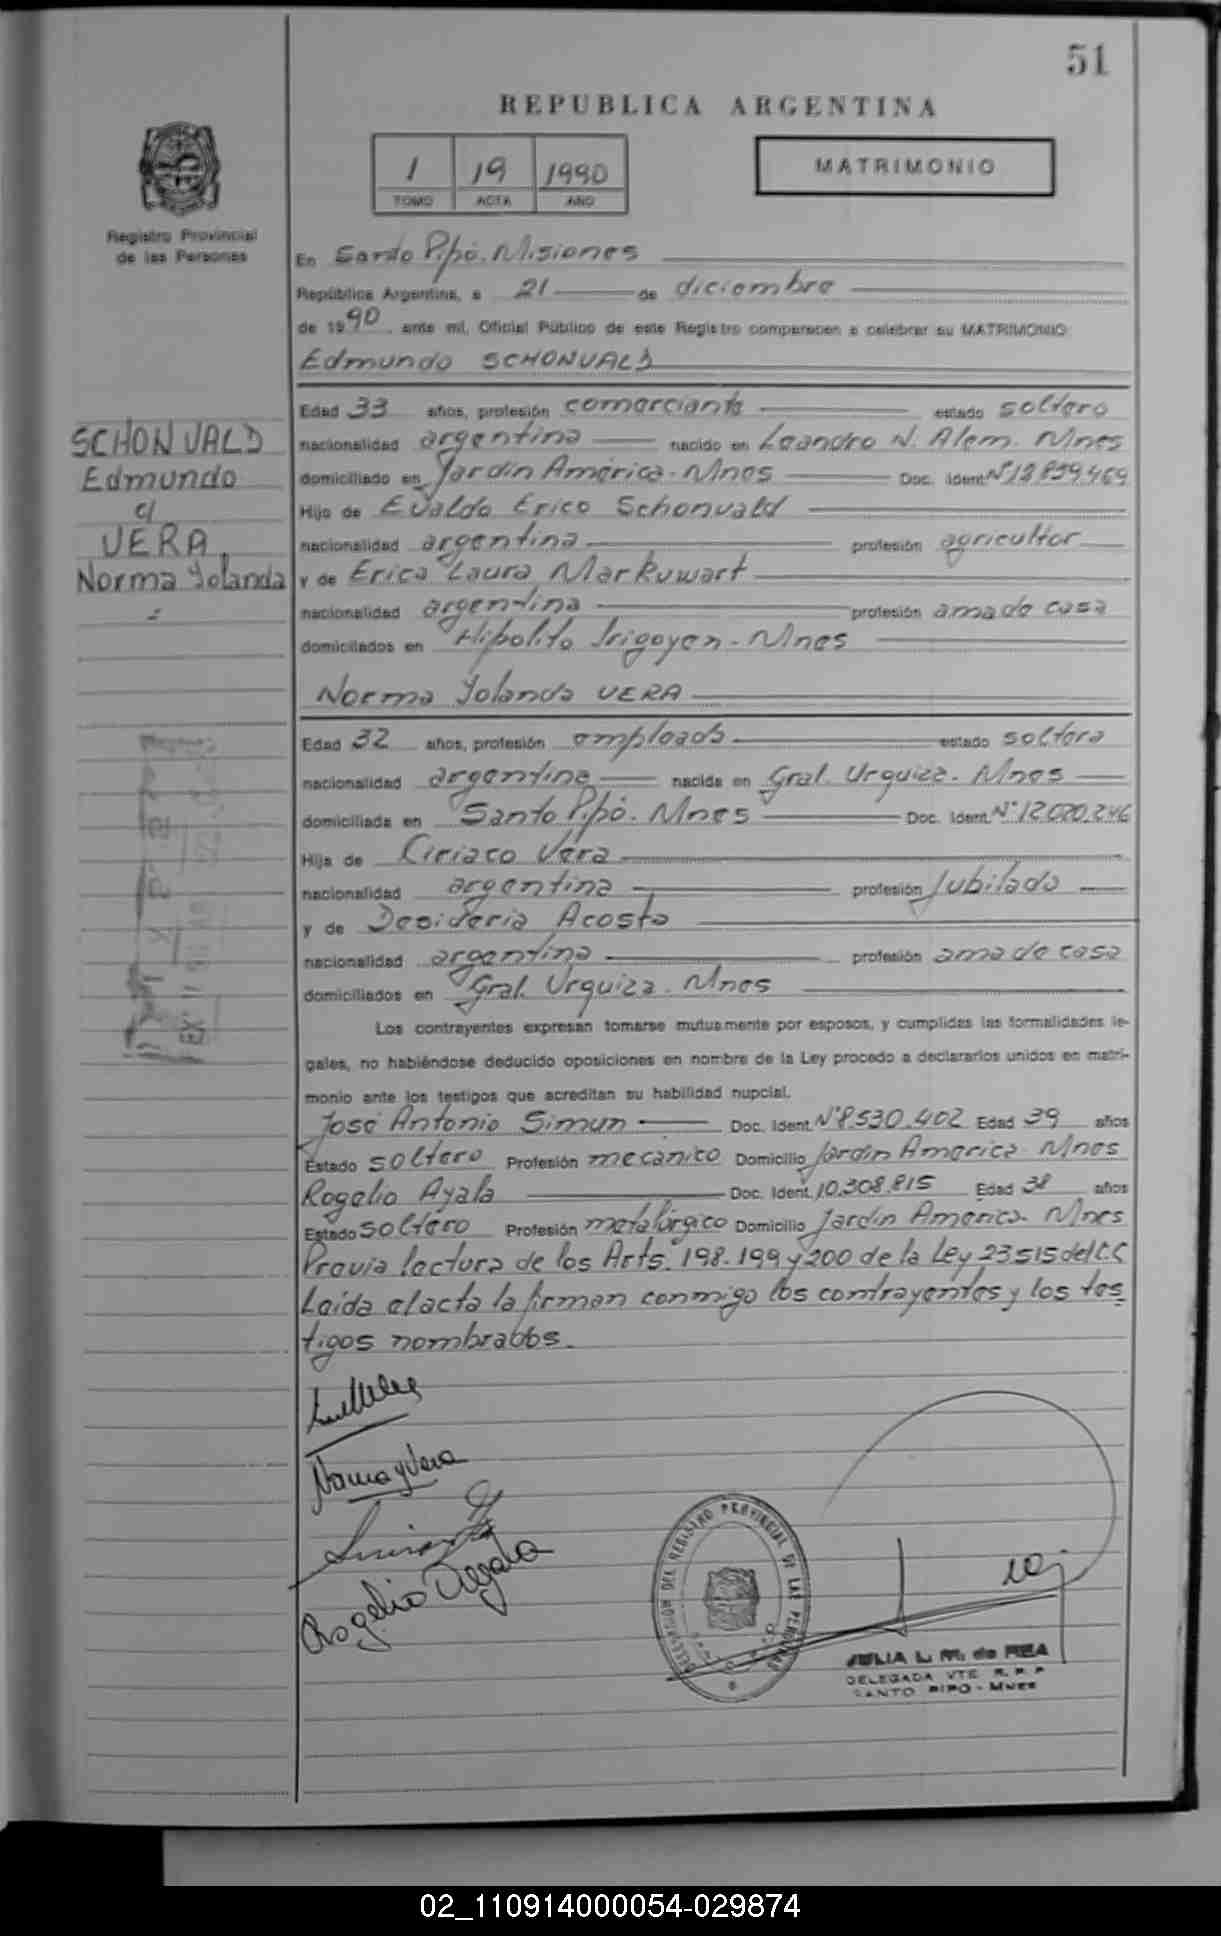 51
REPUBLICA ARGENTINA
1 19 1990
TOMO ACTA AÑO
MATRIMONIO
Registro Provincial
de las Personas
En Santo Pipó. Misiones
República Argentina, a 21 de diciembre
de 1990, ante mí, Oficial Público de este Registro comparecen a celebrar su MATRIMONIO
Edmundo SCHONVALD
Edad 33 años, profesión comerciante estado soltero
nacionalidad argentina nacido en Leandro N. Alem. Mnes
domiciliado en Jardín América - Mnes Doc. Ident. Nº
Hijo de Evaldo Erico Schonvald
nacionalidad argentina profesión agricultor
y de Erica Laura Markuwart
nacionalidad argentina profesión ama de casa
domiciliados en Hipolito Irigoyen - Mnes
SCHONVALD
Edmundo
c/
VERA,
Norma Yolanda
Norma Yolanda VERA
Edad 32 años, profesión empleada estado soltera
nacionalidad argentina nacida en Gral. Urquiza. Mnes
domiciliada en Santo Pipó. Mnes Doc. Ident. Nº 12.020.246
Hija de Ciriaco Vera
nacionalidad argentina profesión Jubilado
y de Desideria Acosta
nacionalidad argentina profesión ama de casa
domiciliados en Gral. Urquiza. Mnes
Los contrayentes expresan tomarse mutuamente por esposos, y cumplidas las formalidades le-
gales, no habiéndose deducido oposiciones en nombre de la Ley procedo a declararlos unidos en matri-
monio ante los testigos que acreditan su habilidad nupcial.
José Antonio Simun Doc. Ident. Nº 8.530.402 Edad 39 años
Estado soltero Profesión mecánico Domicilio Jardín America Mnes
Rogelio Ayala Doc. Ident. 10.308.815 Edad 38 años
Estado soltero Profesión metalúrgico Domicilio Jardín America. Mnes
Previa lectura de los Arts. 198. 199 y 200 de la Ley 23515 del C.C
Leida el acta la firman conmigo los contrayentes y los tes
tigos nombrados.
Norma Y Vera
Rogelio Ayala
DELEGACION DEL REGISTRO PROVINCIAL DE LAS PERSONAS
JULIA L. M. de REA
DELEGADA VTE R. P. P
SANTO PIPO - MNES
02_110914000054-029874